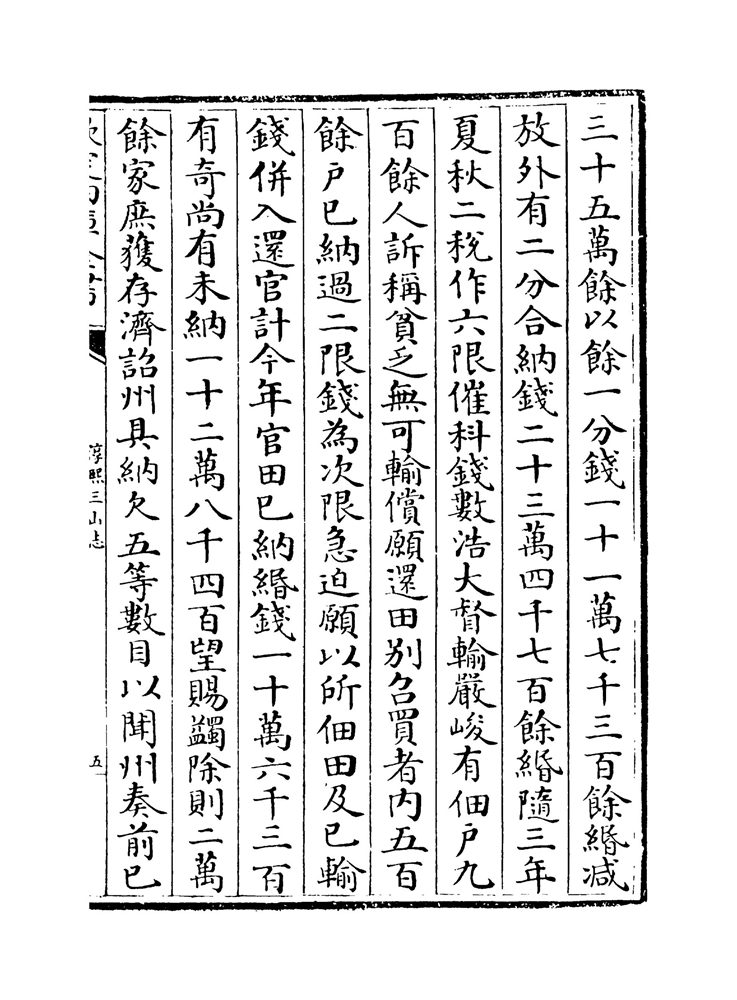 三十五萬餘以餘一分錢一十一萬七千三百餘緡减
放外有二分合納錢二十三萬四千七百餘緡隨三年
夏秋二税作六限催科錢數浩大督輸嚴峻有佃戶九
百餘人訴稱貧乏無可輸償願還田别召買者内五百
餘戶已納過二限錢為次限急迫願以所佃田及已輸
錢併入還官計今年官田已納緡錢一十萬六千三百
有奇尚有未納一十二萬八千四百望賜蠲除則二萬
餘家庶獲存濟詔州具納欠五等數目以聞州奏前已
欽定四庫全書
淳熙三山志
五